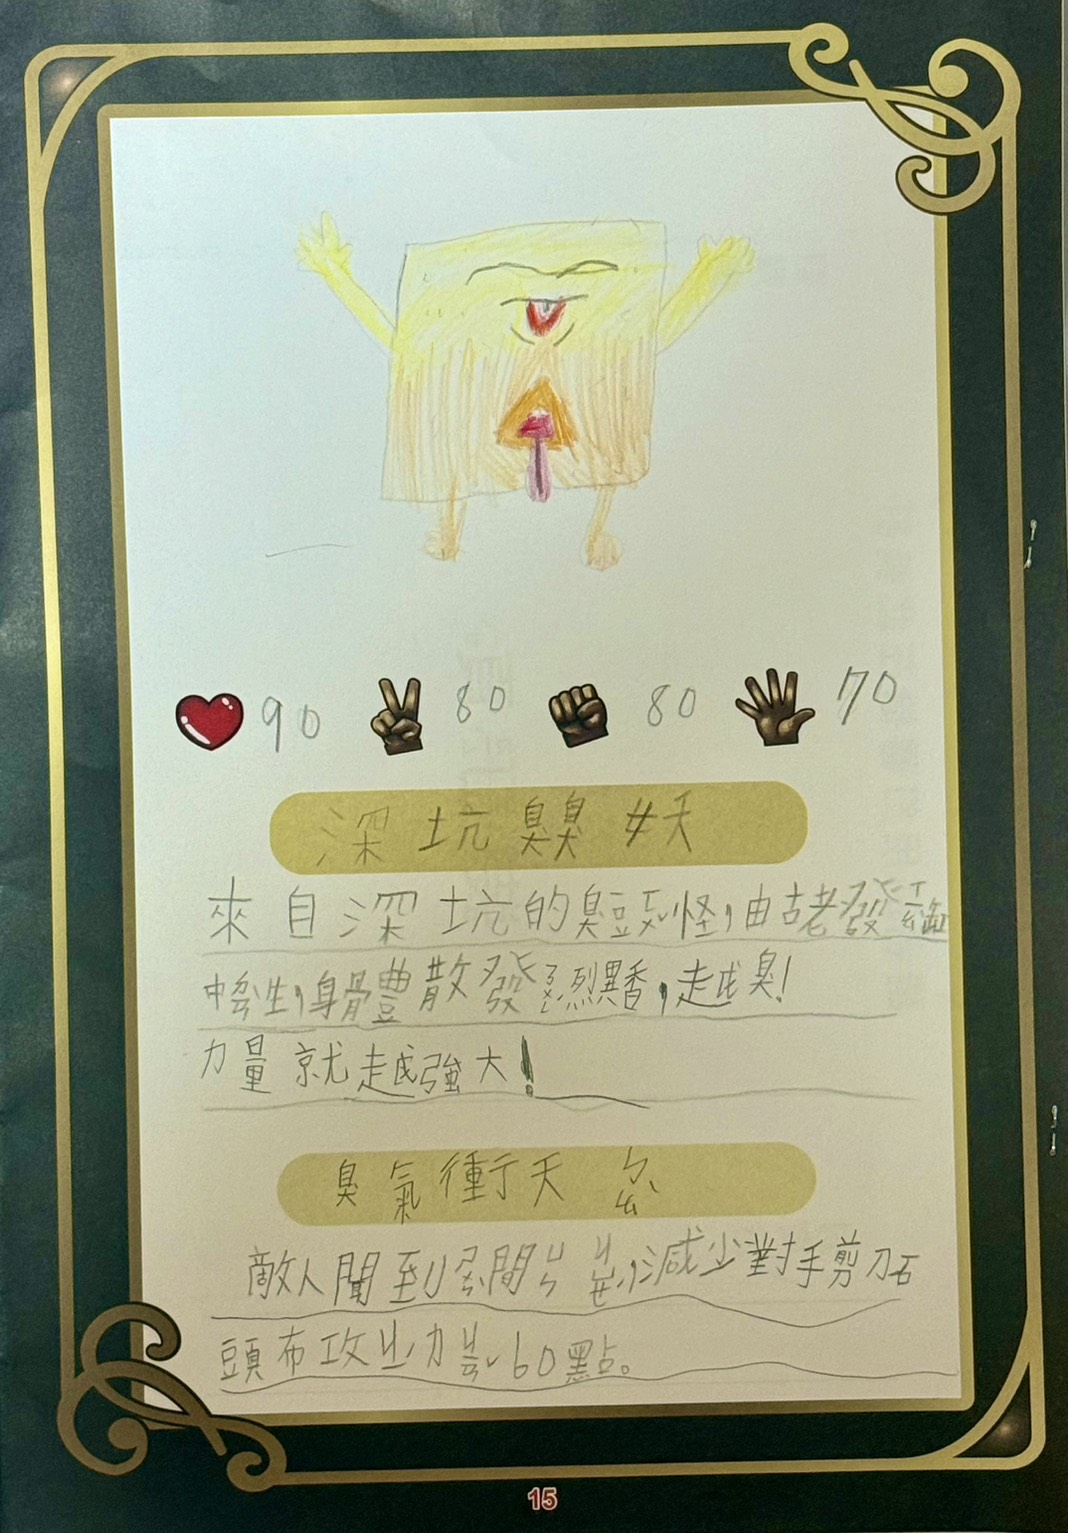 90 80 80 70
深坑臭臭妖
來自深坑的臭豆怪,由古老發
中誕生,身體散發烈異香,越臭!
力量就越強大!
臭氣衝天
敵人聞到ㄕㄣˊ間減少對手剪刀石
頭布攻ㄐㄧ力60點。
15